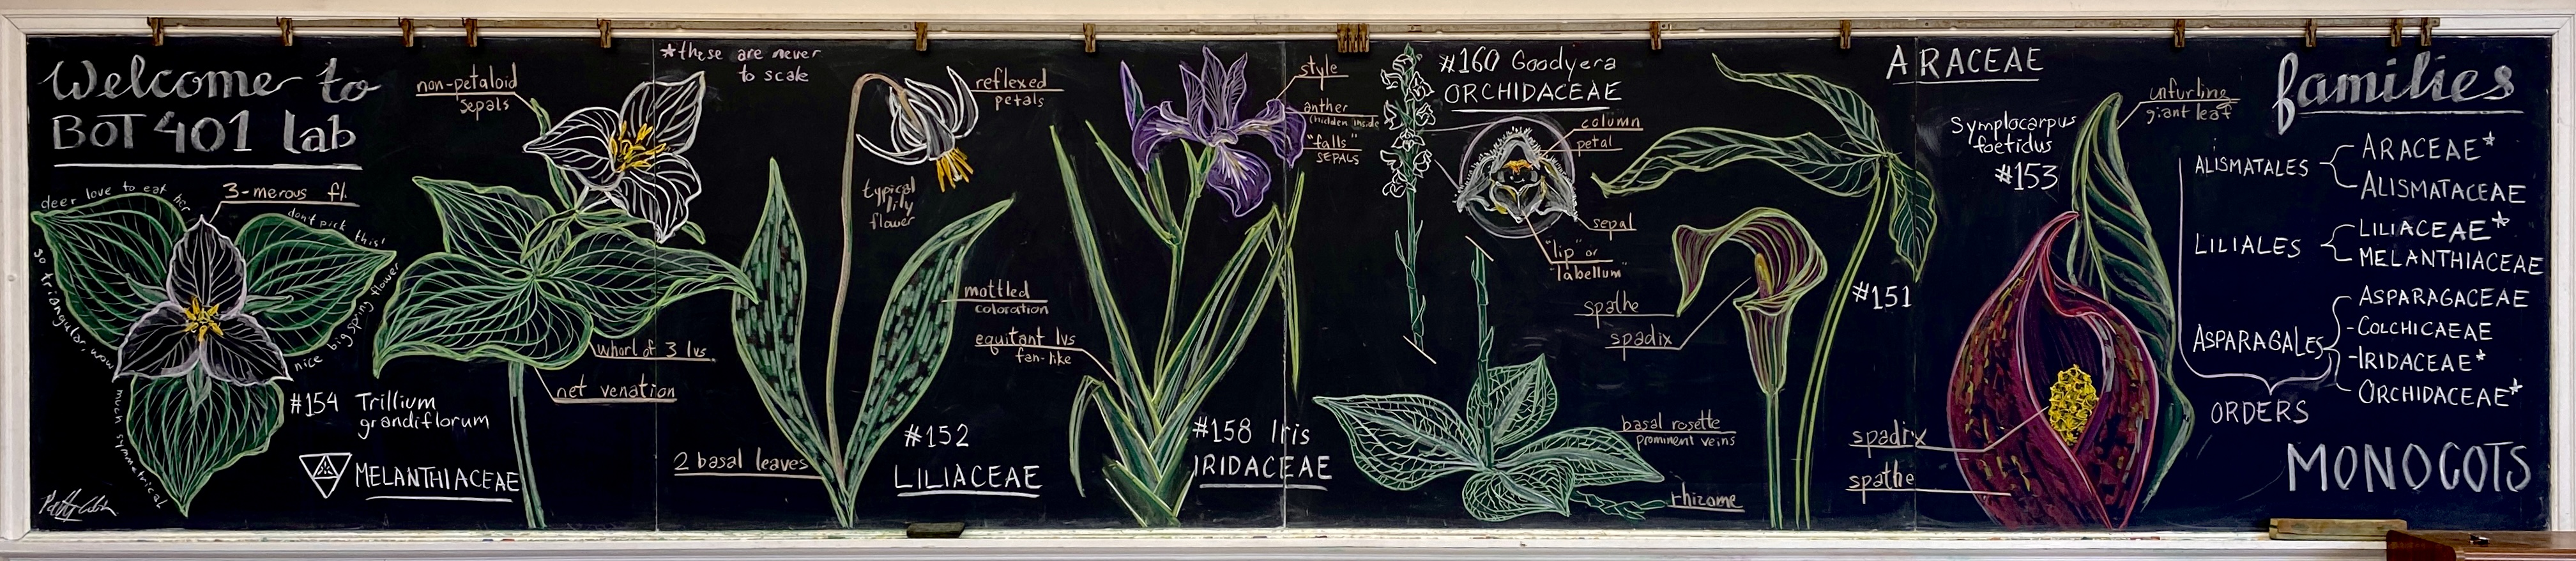 Welcome to
BOT 401 lab
3-merous fl.
deer love to eat her
don't pick this!
so triangular, wow
nice big spring flower
much symmetrical
#154 Trillium
grandiflorum
MELANTHIACEAE
non-petaloid
sepals
whorl of 3 lvs.
net venation
*these are never
to scale
reflexed
petals
typical
lily
flower
mottled
coloration
2 basal leaves
#152
LILIACEAE
equitant lvs
fan-like
style
anther
(hidden inside
"falls"
SEPALS
#158 Iris
IRIDACEAE
#160 Goodyera
ORCHIDACEAE
column
petal
sepal
"lip" or
"labellum"
basal rosette
prominent veins
rhizome
ARACEAE
spathe
spadix
#151
Symplocarpus
foetidus
#153
unfurling
giant leaf
spadix
spathe
families
ALISMATALES
ARACEAE*
ALISMATACEAE
LILIALES
LILIACEAE*
MELANTHIACEAE
ASPARAGALES
ASPARAGACEAE
-COLCHICAEAE
-IRIDACEAE*
ORCHIDACEAE*
ORDERS
MONOCOTS